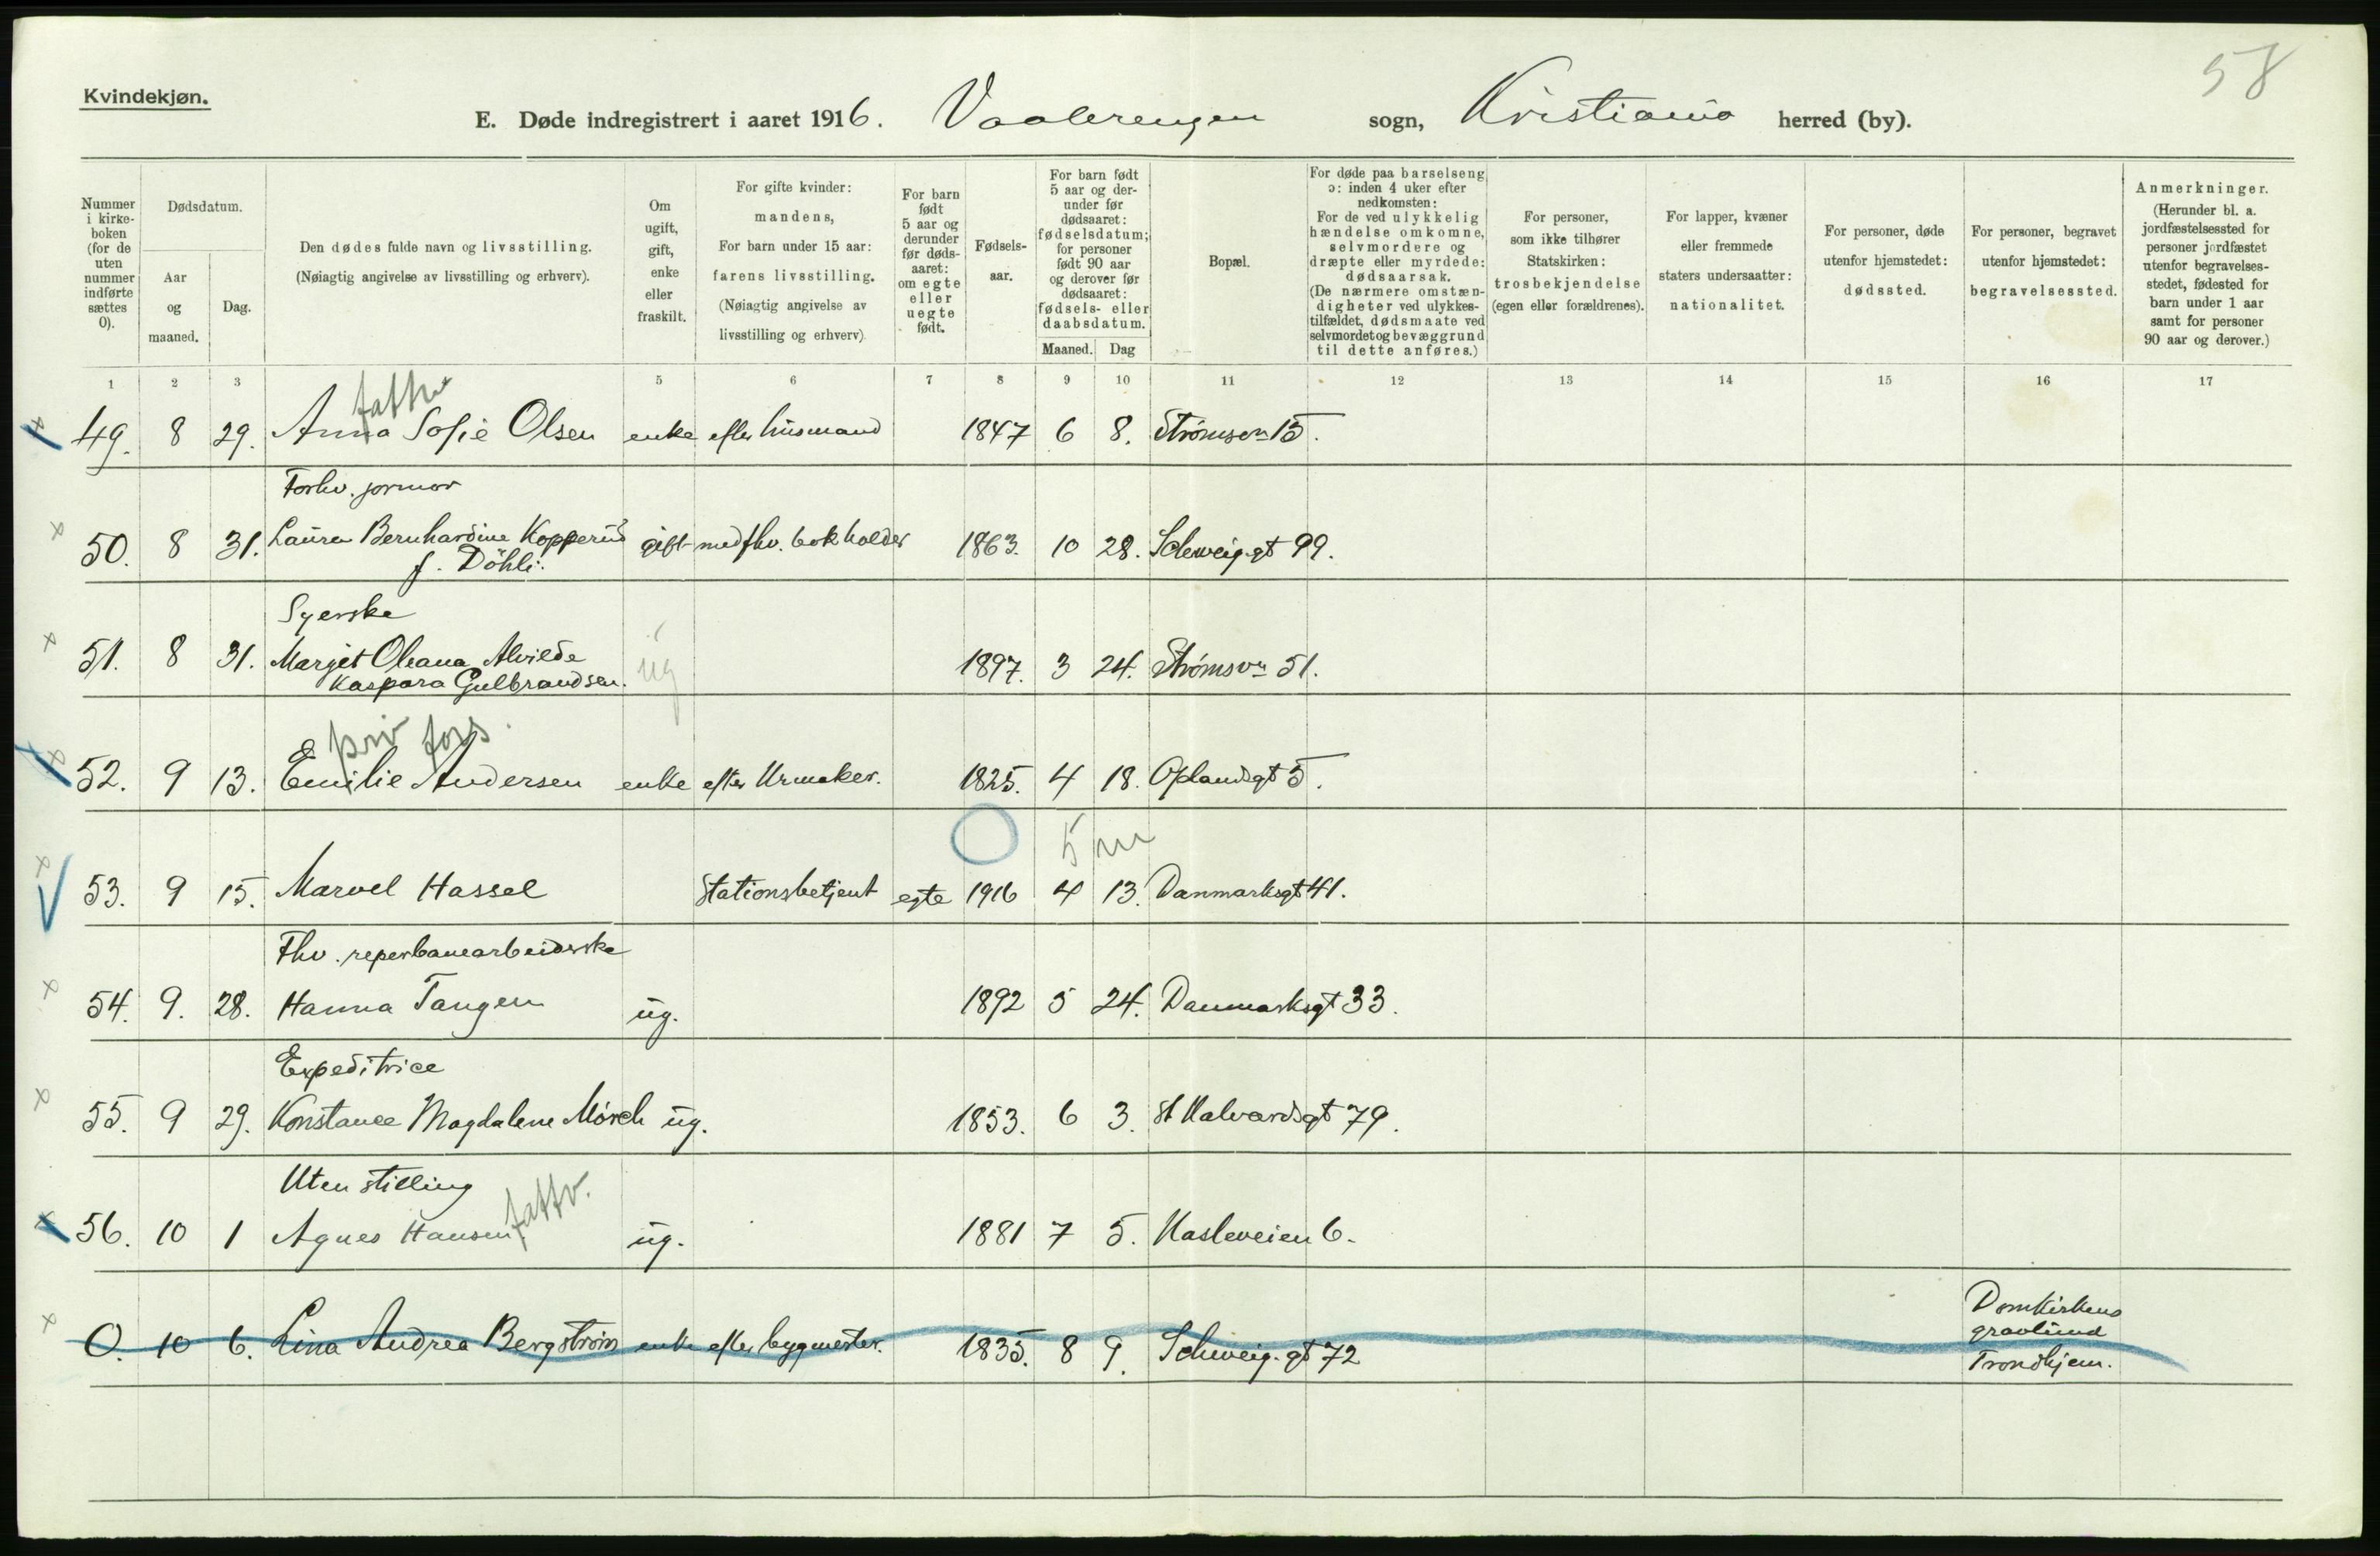 58
Kvindekjøn.
E. Døde indregistrert i aaret 1916. Vaalerengen sogn, Kristiania herred (by).
Nummer i kirke-boken (for de uten nummer indførte sættes 0).
Dødsdatum.
Aar og maaned.
Dag.
Den dødes fulde navn og livsstilling.
(Nøiagtig angivelse av livsstilling og erhverv).
Om ugift, gift, enke eller fraskilt.
For gifte kvinder: mandens, For barn under 15 aar: farens livsstilling. (Nøiagtig angivelse av livsstilling og erhverv)
For barn født 5 aar og derunder før døds-aaret: om egte eller uegte født.
Fødsels-aar.
For barn født 5 aar og der-under før dødsaaret: fødselsdatum; for personer født 90 aar og derover før dødsaaret: fødsels- eller daabsdatum.
Maaned. Dag
Bopæl.
For døde paa barselseng ɔ: inden 4 uker efter nedkomsten: For de ved ulykkelig hændelse omkomne, selvmordere og dræpte eller myrdede: dødsaarsak. (De nærmere omstæn-digheter ved ulykkes-tilfældet, dødsmaate ved selvmordet og bevæggrund til dette anføres.)
For personer, som ikke tilhører Statskirken: trosbekjendelse (egen eller forældrenes).
For lapper, kvæner eller fremmede staters undersaatter: nationalitet.
For personer, døde utenfor hjemstedet: dødssted.
For personer, begravet utenfor hjemstedet: begravelsessted.
Anmerkninger. (Herunder bl. a. jordfæstelsessted for personer jordfæstet utenfor begravelses-stedet, fødested for barn under 1 aar samt for personer 90 aar og derover.)
1 2 3 5 6 7 8 9 10 11 12 13 14 15 16 17
fattv
49. 8 29. Anna Sofie Olsen enke efter husmand 1847 6 8. Strømsvn 15.
Forhv. jormor
50. 8 31. Laura Bernhardine Kopperud gift med fhv. bokholder 1863. 10 28. Schweig.gt 99.
f. Döhli.
Syerske
51. 8 31. Margit Oleana Alvilde ug 1897. 3 24. Strømsvn 51.
Kaspara Gulbrandsen.
priv fors.
52. 9 13. Emilie Andersen enke efter Urmaker. 1825. 4 18. Oplandsgt 5.
5 m
53. 9 15. Marvel Hassel Stationsbetjent egte 1916 4 13. Danmarksgt 41.
Fhv. reperbanearbeiderske
54. 9. 28. Hanna Tangen ug. 1892 5 24. Danmarksgt 33.
Expeditrice
55. 9 29. Konstance Magdalene Mørch ug. 1853. 6 3. St Halvardsgt 79.
Uten stilling
56. 10 1 Agnes Hansen fattv. ug. 1881 7 5. Hasleveien 6.
0. 10 6. Lina Andrea Bergstrøm enke efter bygmester. 1835. 8 9. Schweig.gt 72 Domkirkens
gravlund
Trondhjem.